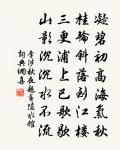 凝碧初高海氣秋
桂輪斜落到江樓
三更浦上巴歌歇
山影沉沉水不流
李涉秋夜題夷陵水館
詞典網